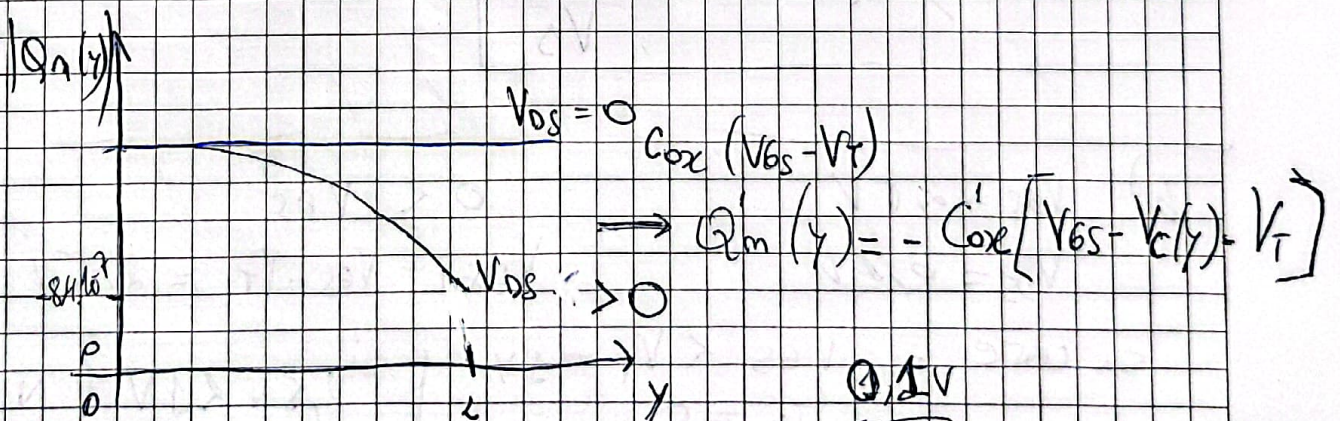 |Qn(y)|
VDS = 0
Cox (VGS - VT)
→ Q'n (y) = - C'ox [VGS - Vc(y) - VT]
VDS > 0
0
L
y
0,1V